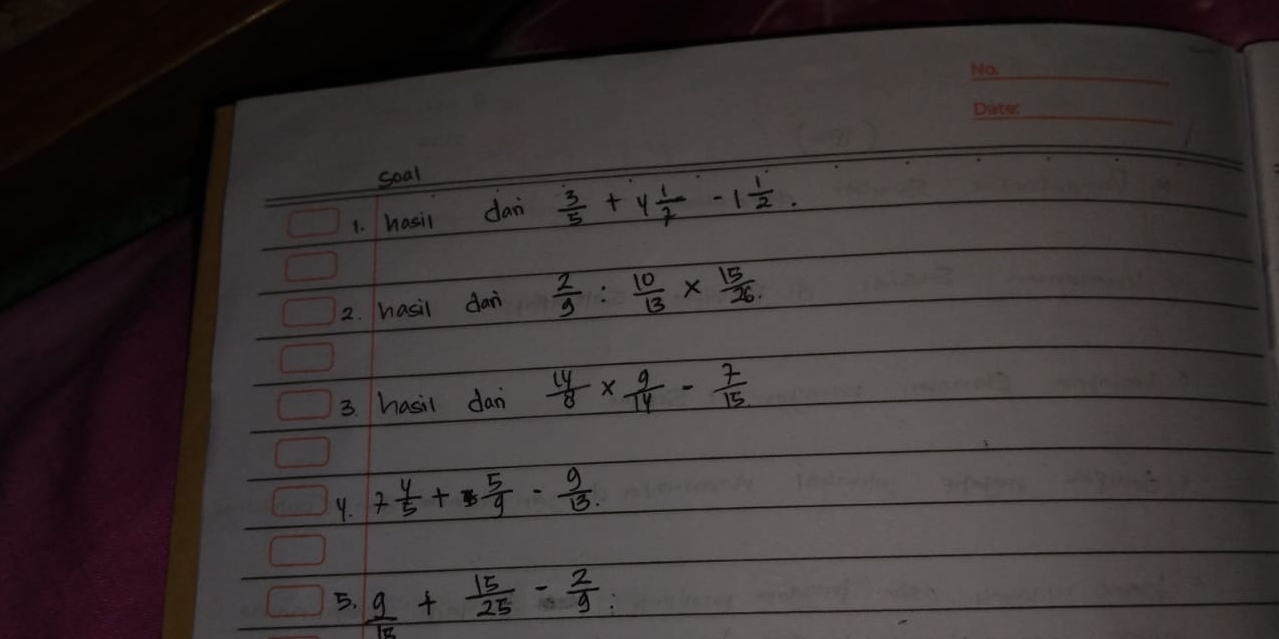 No.
Date:
Soal
1. hasil dari 3/5 + 4 1/7 - 1 1/2.
2. hasil dari 2/9 : 10/13 × 15/26.
3. hasil dari 14/8 × 9/14 - 7/15.
4. 7 4/5 + 5/9 - 9/13.
5. 9/15 + 15/25 - 2/9 :